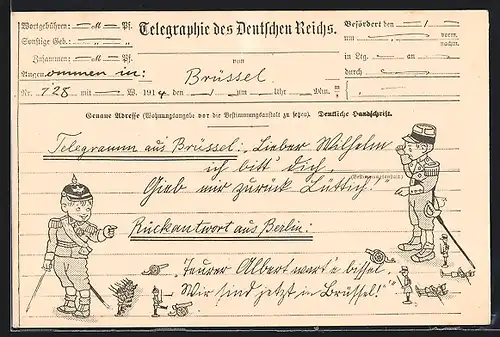 Wortgebühren: — M — Pf.
Sonstige Geb.: " "
Zusammen: — M — Pf.
Angenommen in:
Nr. 128 mit — W. 1914 den — / — um — Uhr — Min.
Telegraphie des Deutschen Reichs.
von
Brüssel.
Befördert den — / —
um — vorm. nachm.
in Ltg. — an —
durch —
Genaue Adresse (Wohnungsangabe vor die Bestimmungsanstalt zu setzen). Deutliche Handschrift.
Telegramm aus Brüssel: „Lieber Wilhelm
ich bitt' dich,
(Bestimmungsanstalt)
Gieb mir zurück Lüttich!"
Rückantwort aus Berlin:
„Teurer Albert wart'e bissel,
Wir sind jetzt in Brüssel!"